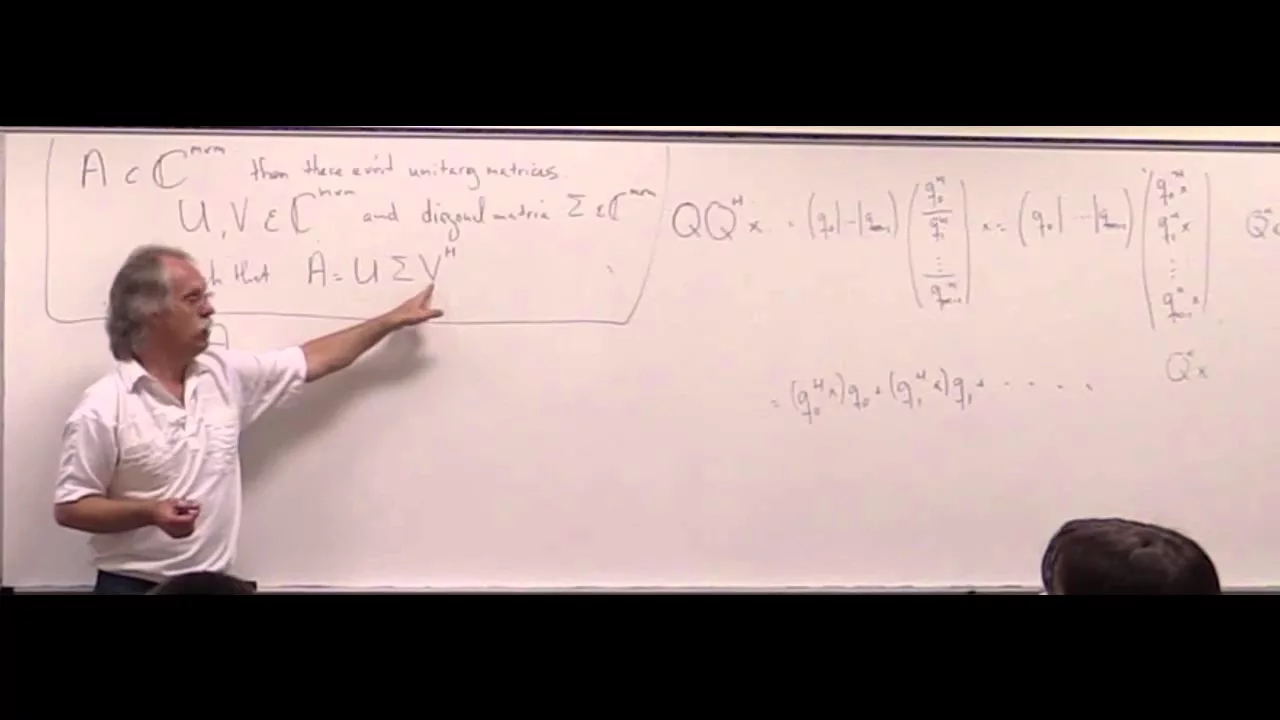 A ∈ ℂ^{m×m} then there exist unitary matrices
U, V ∈ ℂ^{m×m} and diagonal matrix Σ ∈ ℂ^{m×m}
that A = U Σ V^H
A
QQ^H x = (q_0 | – | q_{m-1}) (q_0^H / q_1^H / ⋮ / q_{m-1}^H) x = (q_0 | ⋯ | q_{m-1}) (q_0^H x / q_1^H x / ⋮ / q_{m-1}^H x)
Q^H x
= (q_0^H x) q_0 + (q_1^H x) q_1 + ⋯ ⋯